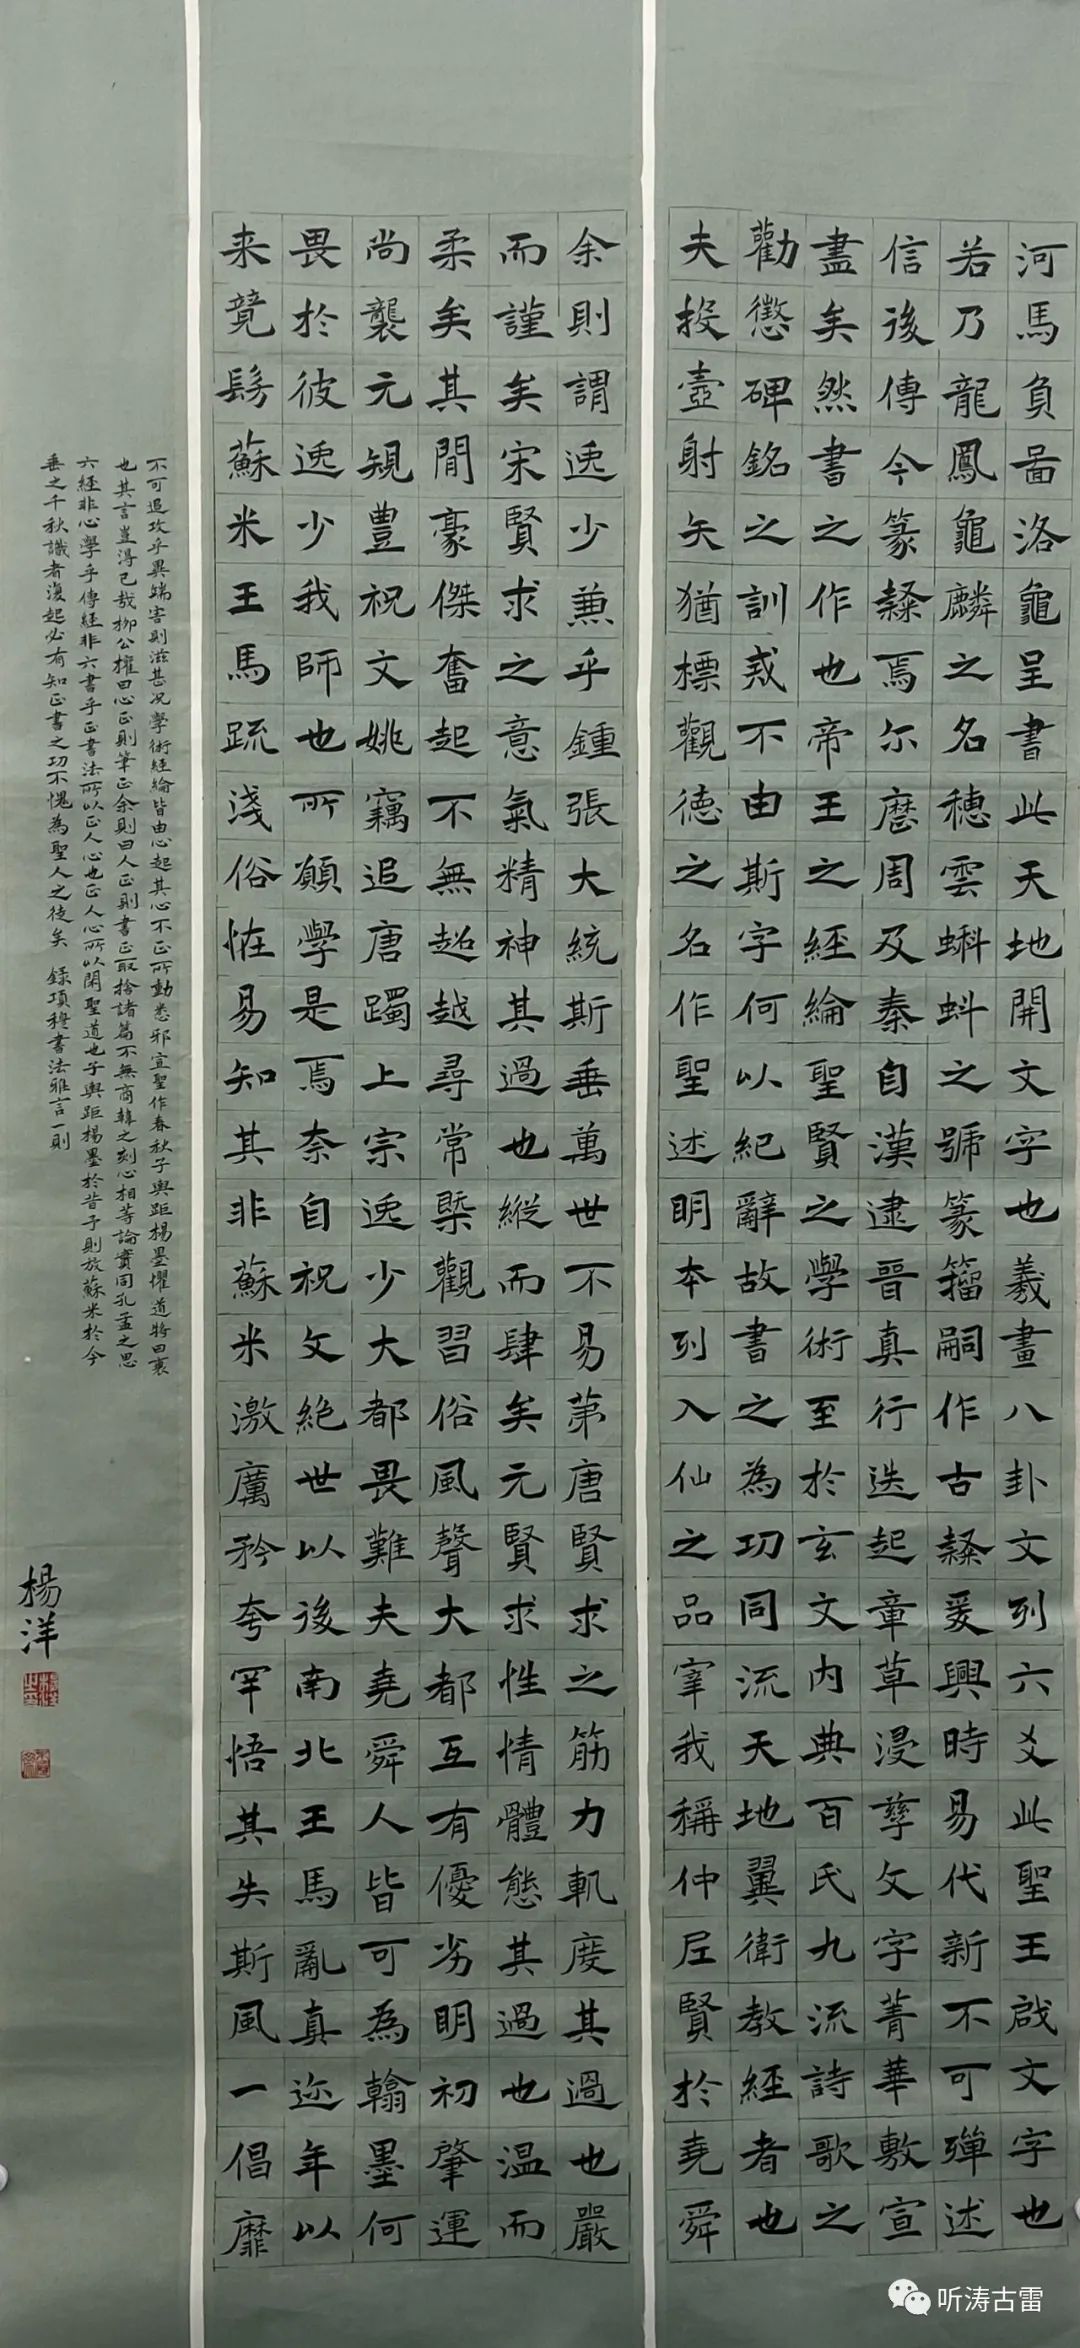 河馬負啚洛龜呈書此天地開文字也羲畫八卦文列六爻此聖王啟文字也
若乃龍鳳龜麟之名穗雲蝌蚪之號篆籀嗣作古隸爰興時易代新不可殫述
信後傳今篆隸焉尔麿周及秦自漢逮晉真行迭起章草浸孳文字菁華敷宣
盡矣然書之作也帝王之經綸聖賢之學術至於玄文內典百氏九流詩歌之
勸懲碑銘之訓戒不由斯字何以紀辭故書之為功同流天地翼衛教經者也
夫投壺射矢猶標觀德之名作聖述明本列入仙之品宰我稱仲尼賢於堯舜
余則謂逸少兼乎鍾張大統斯垂萬世不易苐唐賢求之筋力軌度其過也嚴
而謹矣宋賢求之意氣精神其過也縱而肆矣元賢求性情體態其過也温而
柔矣其間豪傑奮起不無超越尋常槩觀習俗風聲大都互有優劣明初肇運
尚襲元規豊祝文姚竊追唐躅上宗逸少大都畏難夫堯舜人皆可為翰墨何
畏於彼逸少我師也所願學是焉奈自祝文絕世以後南北王馬亂真迩年以
来競髣蘇米王馬疏淺俗恠易知其非蘇米激厲矜夸罕悟其失斯風一倡靡
不可追攻乎異端害則滋甚况學術經綸皆由心起其心不正所動悉邪宣聖作春秋子輿距楊墨懼道將日衰
也其言豈得已哉柳公權曰心正則筆正余則曰人正則書正取捨諸篇不無商韓之刻心相等論實同孔孟之思
六經非心學乎傳經非六書乎正書法所以正人心也正人心所以閑聖道也子輿距楊墨於昔予則放蘇米於今
垂之千秋識者復起必有知正書之功不愧為聖人之徒矣 録項穆書法雅言一則
楊洋
听涛古雷